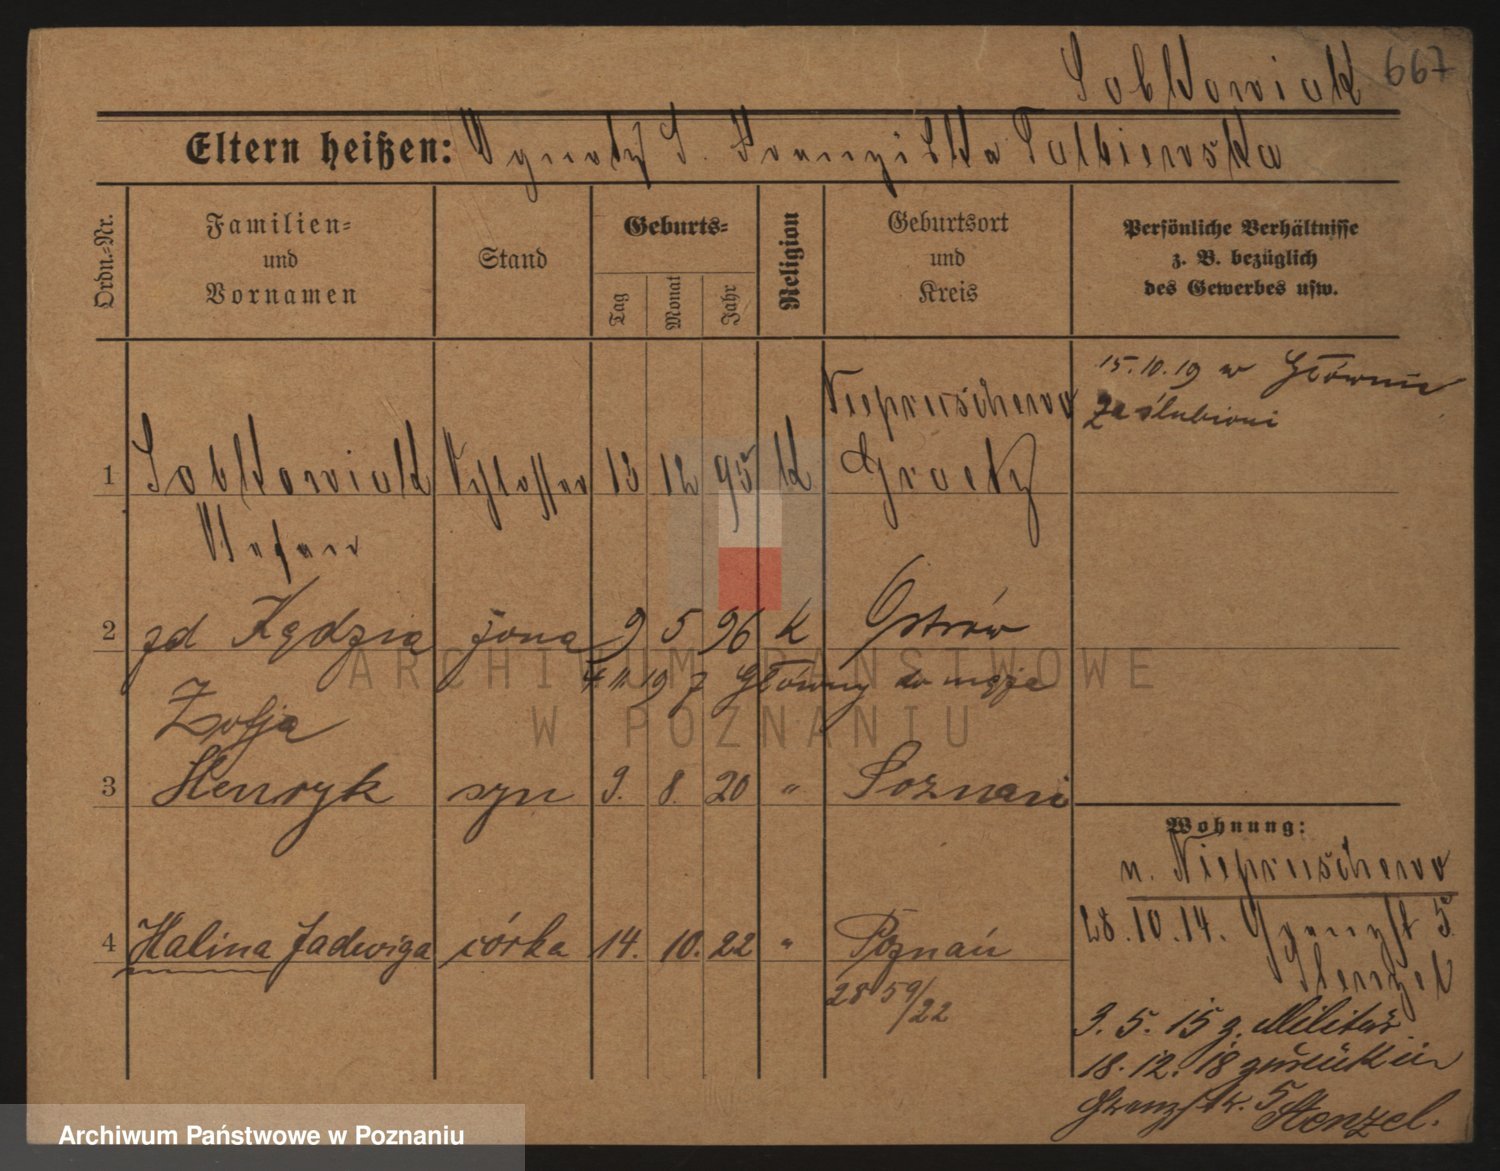 Sobkowiak 667
Eltern heißen: Ignatz S. Franziska
Ordn.-Nr.
Familien-
und
Vornamen
Stand
Geburts-
Tag
Monat
Jahr
Religion
Geburtsort
und
Kreis
Persönliche Verhältnisse
z. B. bezüglich
des Gewerbes usw.
15.10.19 w Głównie
zaślubieni
Niepruschewo
1 Sobkowiak Schlosser 13 12 95 K Graetz
Stefan
2 zd Kędzia żona 9 5 96 K Ostrów
4 11 19 z Główny do męża
Zofja
3 Henryk syn 9. 8. 20 " Poznań
Wohnung:
n. Niepruschewo
4 Halina Jadwiga córka 14. 10. 22 " Poznań
28 59/22
28.10.14. Grenzst 5.
Stenzel
3. 5. 15 z. Militär
18. 12. 18 zurück in
Grenzstr. 5 Stenzel.
ARCHIWUM PAŃSTWOWE
W POZNANIU
Archiwum Państwowe w Poznaniu